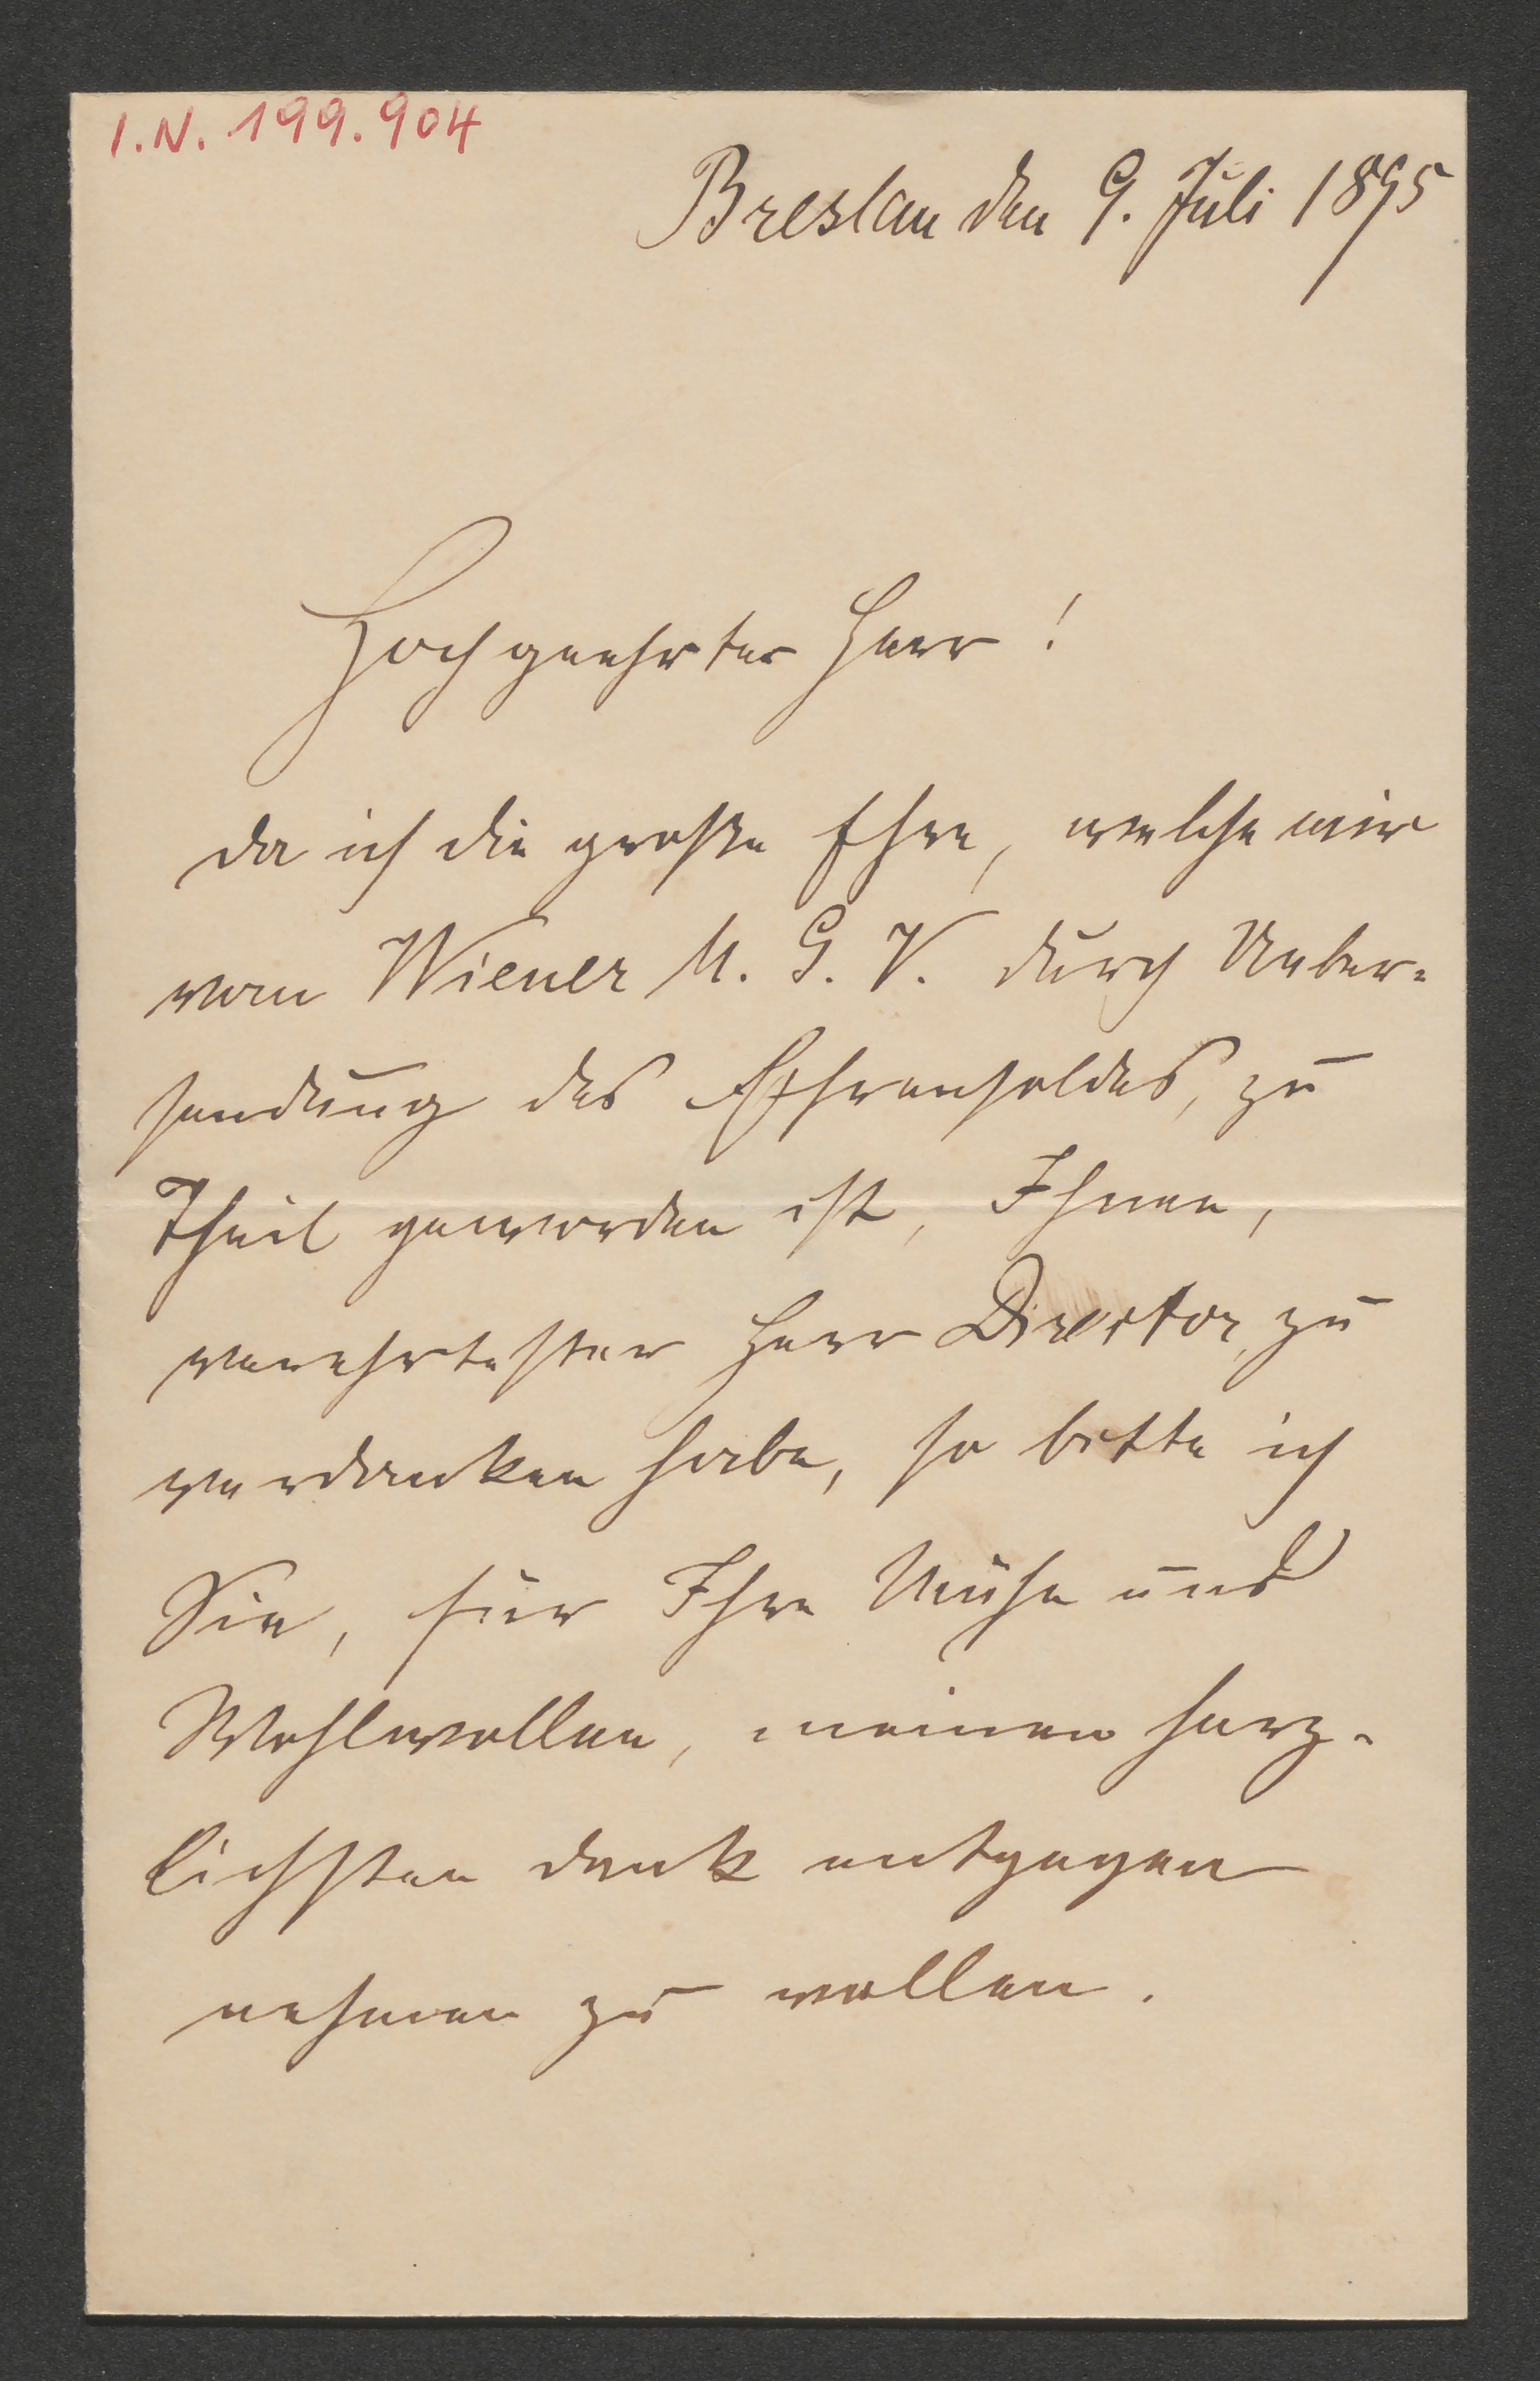 I.N. 199.904
Breslau den 9. Juli 1895
Hochgeehrter Herr!
da ich die große Ehre, welche mir
vom Wiener M. G. V. durch Ueber-
sendung des Ehrensoldes, zu
Theil geworden ist, Ihnen,
verehrtester Herr Director, zu
verdanken habe, so bitte ich
Sie, für Ihre Mühe und
Wohlwollen, meinen herz-
lichsten Dank entgegen
nehmen zu wollen.